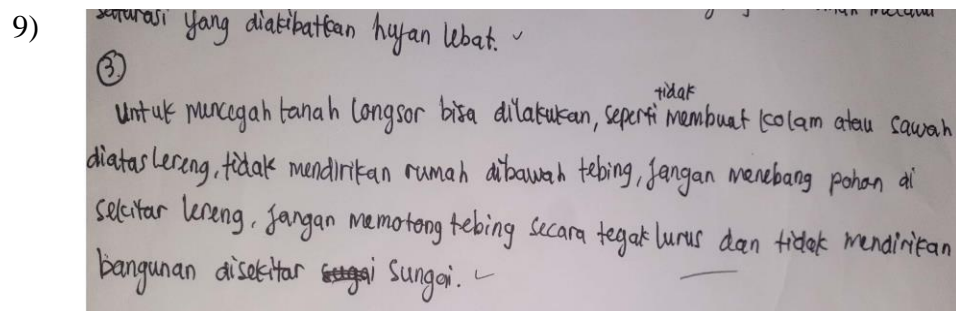 9)
saturasi yang diakibatkan hujan lebat.
3.
tidak
Untuk mencegah tanah longsor bisa dilakukan, seperti membuat kolam atau sawah
diatas lereng, tidak mendirikan rumah dibawah tebing, jangan menebang pohon di
sekitar lereng, jangan memotong tebing secara tegak lurus dan tidak mendirikan
bangunan disekitar sungai.